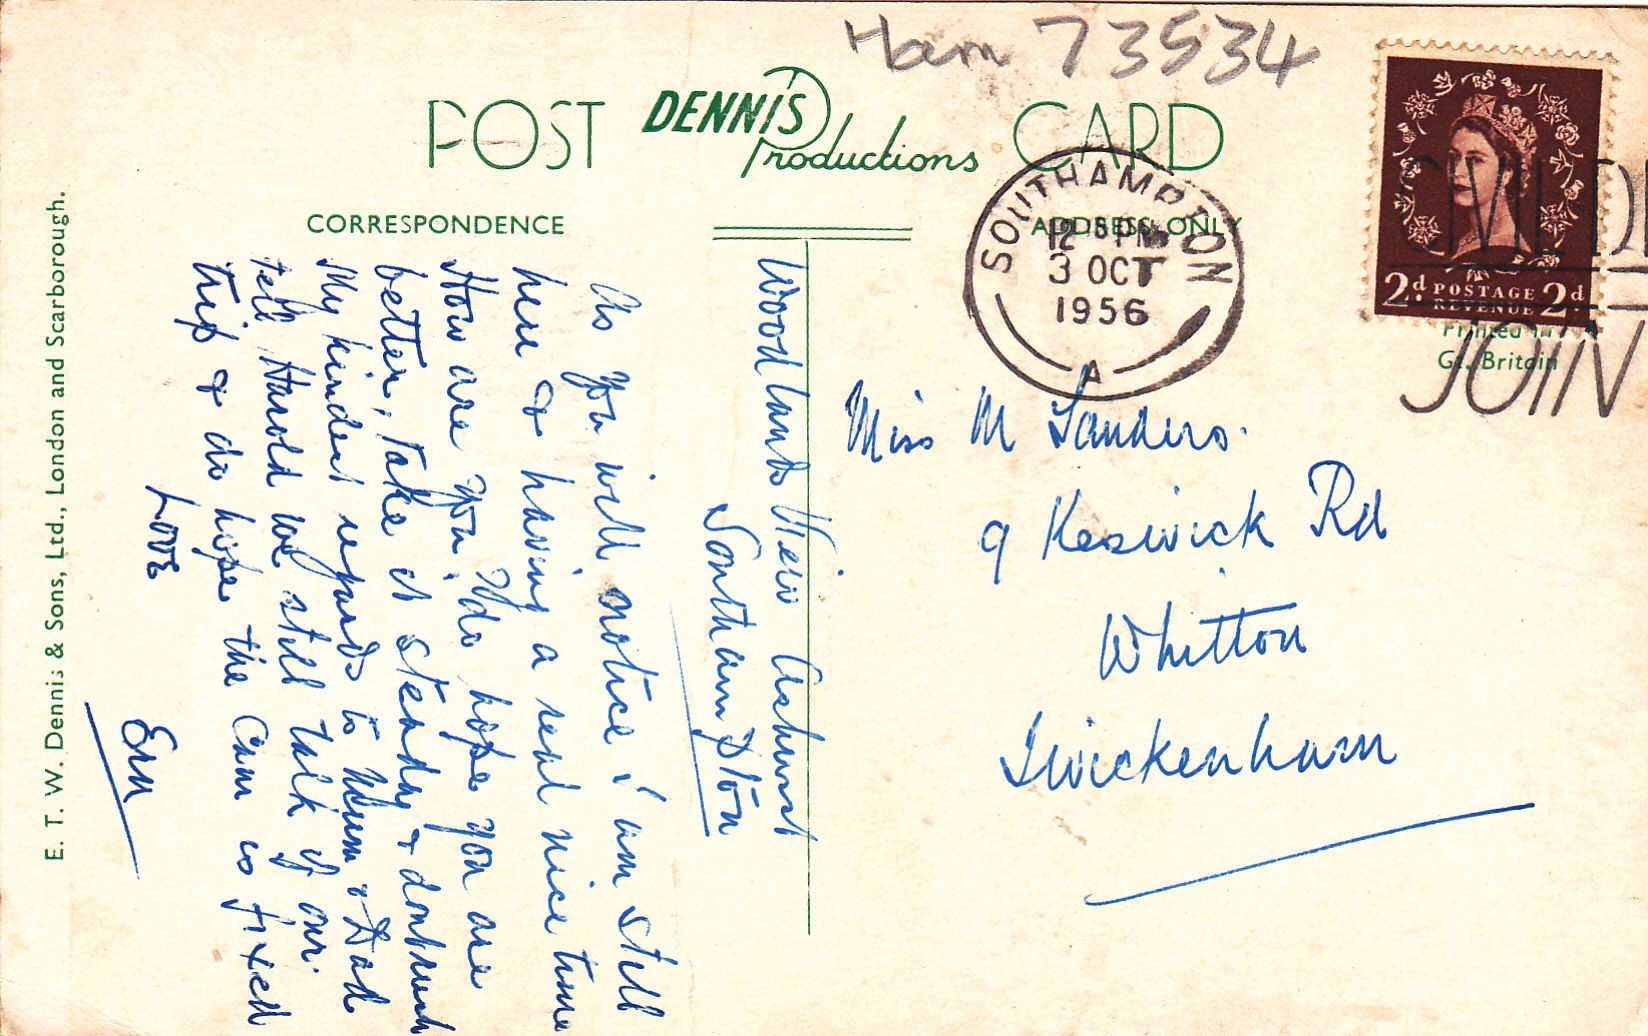 Ham 73534
POST DENNIS Productions CARD
CORRESPONDENCE
ADDRESS ONLY
SOUTHAMPTON
12 PM
3 OCT
1956
A
2d POSTAGE REVENUE 2d
JOIN
Printed in
Gt. Britain
Miss M Sanders.
9 Keswick Rd
Whitton
Twickenham
Woodlands View Ashurst
Southampton
As you will notice I am still
here & having a real nice time
How are you. I do hope you are
better, take it steady & dont rush
My kindest regards to Mum & Dad
tell Harold we still talk of our
trip & do hope the Cam is fixed
Love
Ern
E. T. W. Dennis & Sons, Ltd., London and Scarborough.